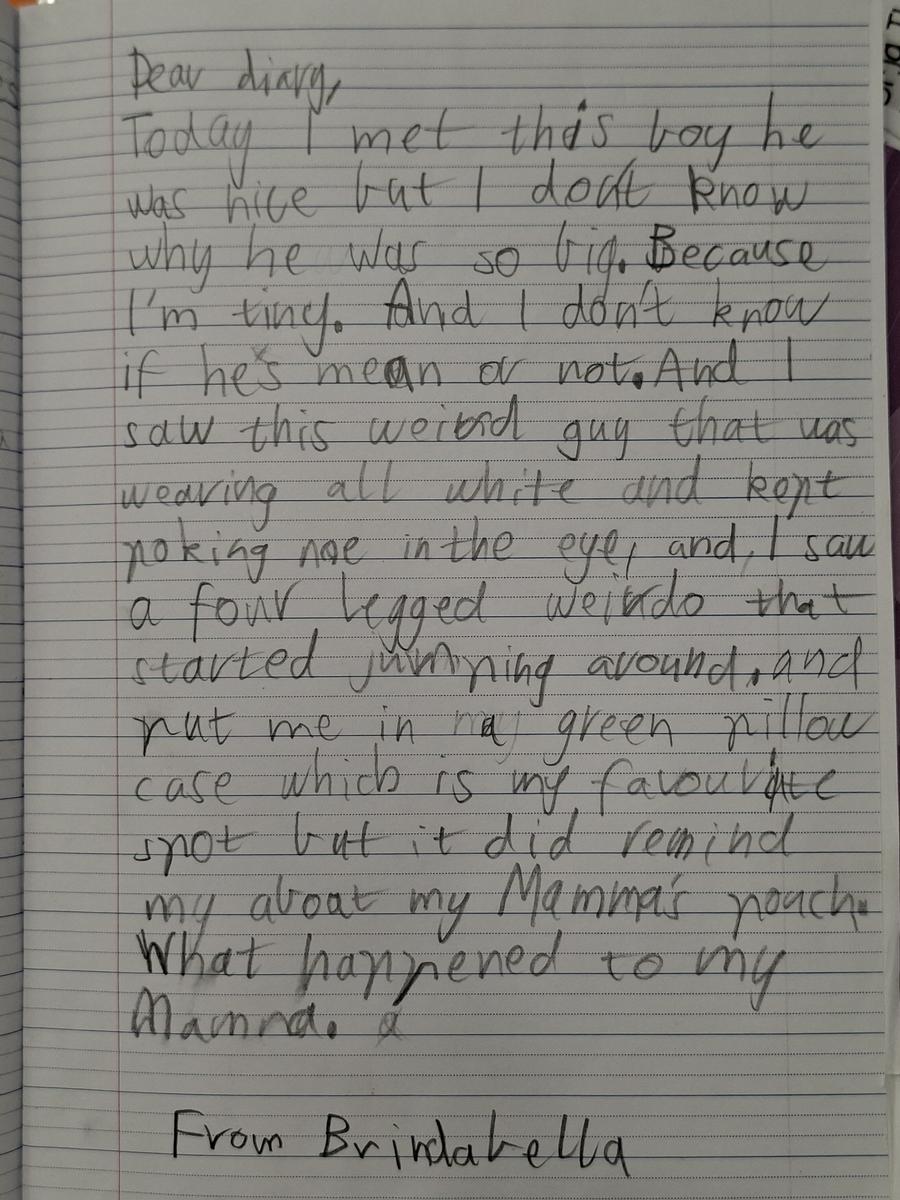 Dear diary,
Today I met this boy he
was nice but I don't know
why he was so big. Because
I'm tiny. And I don't know
if he's mean or not. And I
saw this weird guy that was
wearing all white and kept
poking me in the eye, and, I saw
a four legged weirdo that
started jumping around. and
put me in a green pillow
case which is my favourite
spot but it did remind
my about my Mamma's pouch.
What happened to my
Mamma.
From Brindabella